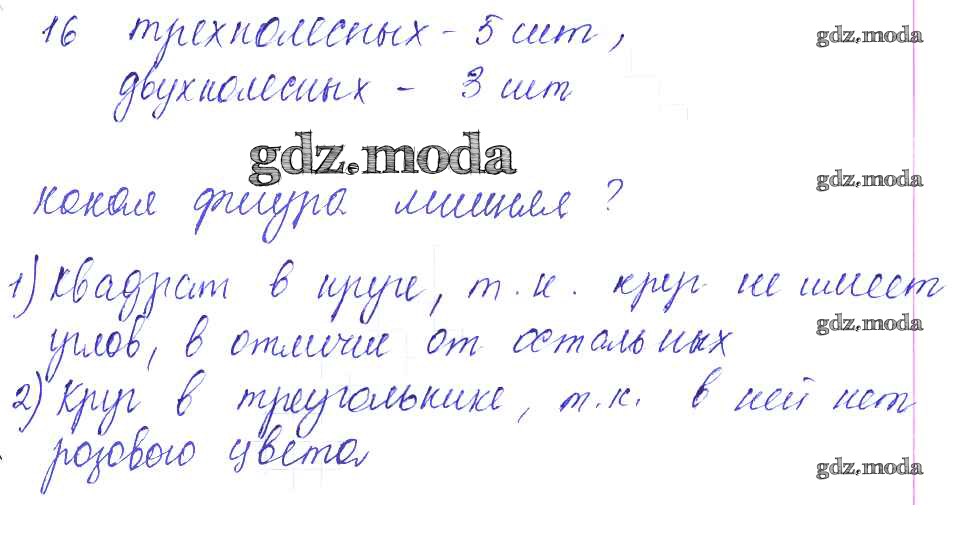 16 трехколесных - 5 шт, gdz.moda
двухколесных - 3 шт
gdz.moda
какая фигура лишняя? gdz.moda
1) Квадрат в круге, т.к. круг не имеет
углов, в отличие от остальных gdz.moda
2) Круг в треугольнике, т.к. в ней нет
розового цвета gdz.moda